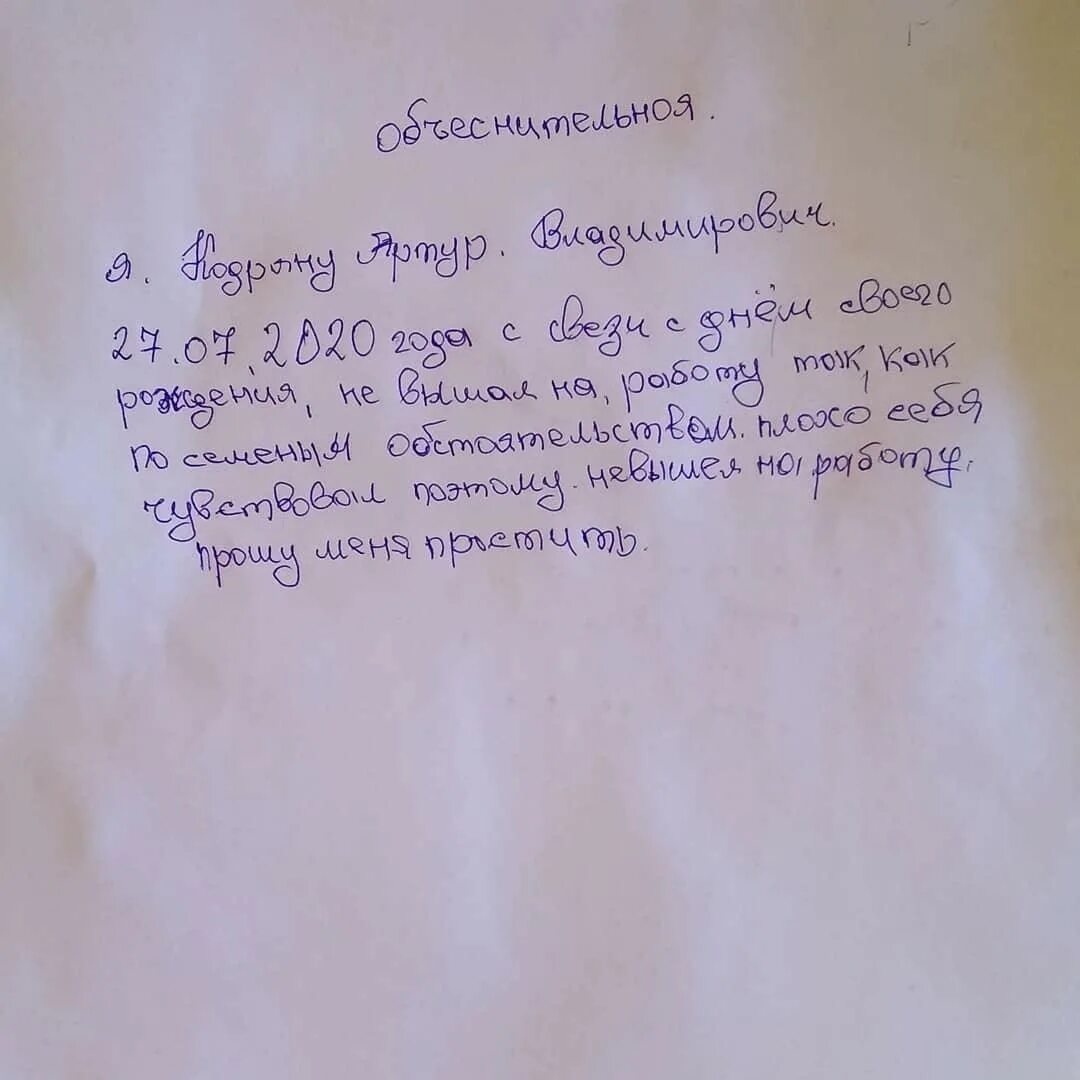 объеснительноя.
я. Кодряну Артур. Владимирович.
27.07.2020 года с свези с днём своего
рождения, не вышал на, работу так, как
по семеным обстоятельствам. плохо себя
чувствовал поэтому. невышел на работу.
прошу меня простить.